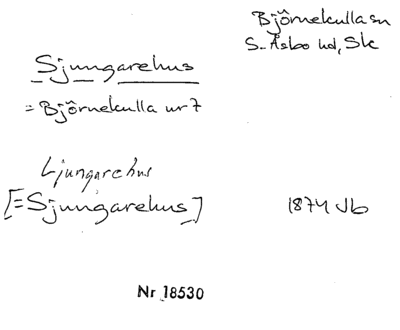 Björnekulla sn
S. Åsbo hd, Sk
Sjungarehus
= Björnekulla nr 7
Ljungarehus
[= Sjungarehus]
1874 Jb
Nr 18530